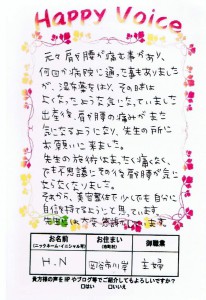 Happy Voice
元々肩が腰が痛む事があり、
何回か病院に通った事もありました
が、湿布薬をはり、その時は
よくなったような気になっていました
出産後、肩が腰の痛みがまた
気になるようになり、先生の所に
お願いに来ました。
先生の施術は、まったく痛くなく、
でも不思議にその後肩が腰が気に
ならなくなりました。
それから、美容整体で少しでも自分に
自信が持てるようにと思っています。
先生には大変感謝しています。
お名前 お住まい 御職業
(ニックネーム・イニシャル可) (市町村)
H.N 岡谷市川岸 主婦
貴方様の声をHPやブログ等でご紹介してもよろしいですか?
□はい □いいえ